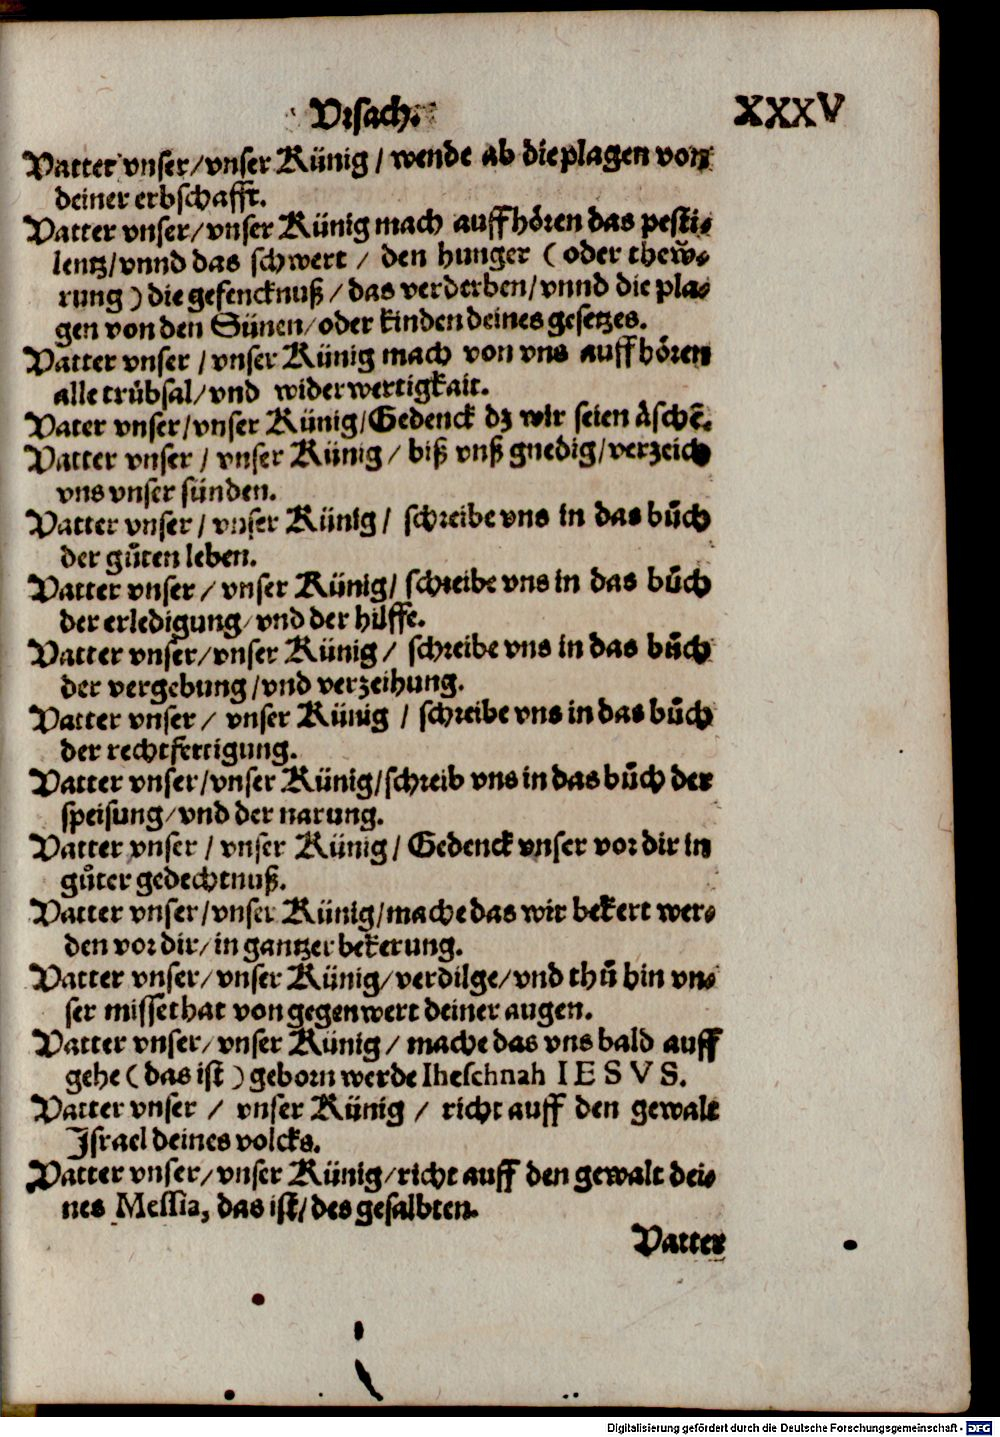 Vrsach. XXXV
Vatter vnser/vnser Künig/ wende ab die plagen von
deiner erbschafft.
Vatter vnser/vnser Künig mach auffhoͤren das pesti-
lentz/vnnd das schwert / den hunger (oder thew̃-
rung) die gefencknuß/das verderben/vnnd die pla-
gen von den Sünen/oder kinden deines gesetzes.
Vatter vnser /vnser Künig mach von vns auffhoͤren
alle truͤbsal/vnd widerwertigkait.
Vater vnser/vnser Künig/Gedenck dz wir seien aͤschẽ.
Vatter vnser / vnser Künig/ biß vnß gnedig/verzeich
vns vnser sünden.
Vatter vnser / vnser Künig/ schreibe vns in das buͦch
der guͦten leben.
Vatter vnser / vnser Künig/ schreibe vns in das buͦch
der erledigung/vnd der hilffe.
Vatter vnser/vnser Künig/ schreibe vns in das buͦch
der vergebung/vnd verzeihung.
Vatter vnser / vnser Künig / schreibe vns in das buͦch
der rechtfertigung.
Vatter vnser/vnser Künig/schreib vns in das buͦch der
speisung/vnd der narung.
Vatter vnser / vnser Künig/ Gedenck vnser vor dir in
guͦter gedechtnuß.
Vatter vnser/vnser Künig/mache das wir bekert wer-
den vor dir/in gantzer bekerung.
Vatter vnser/vnser Künig/verdilge/vnd thuͦ hin vn-
ser missethat von gegenwert deiner augen.
Vatter vnser/vnser Künig/ mache das vns bald auff
gehe (das ist) geborn werde Iheschnah IESVS.
Vatter vnser / vnser Künig / richt auff den gewalt
Israel deines volcks.
Vatter vnser/vnser Künig/richt auff den gewalt dei-
nes Messia, das ist/des gesalbten.
Vatter
Digitalisierung gefördert durch die Deutsche Forschungsgemeinschaft - DFG